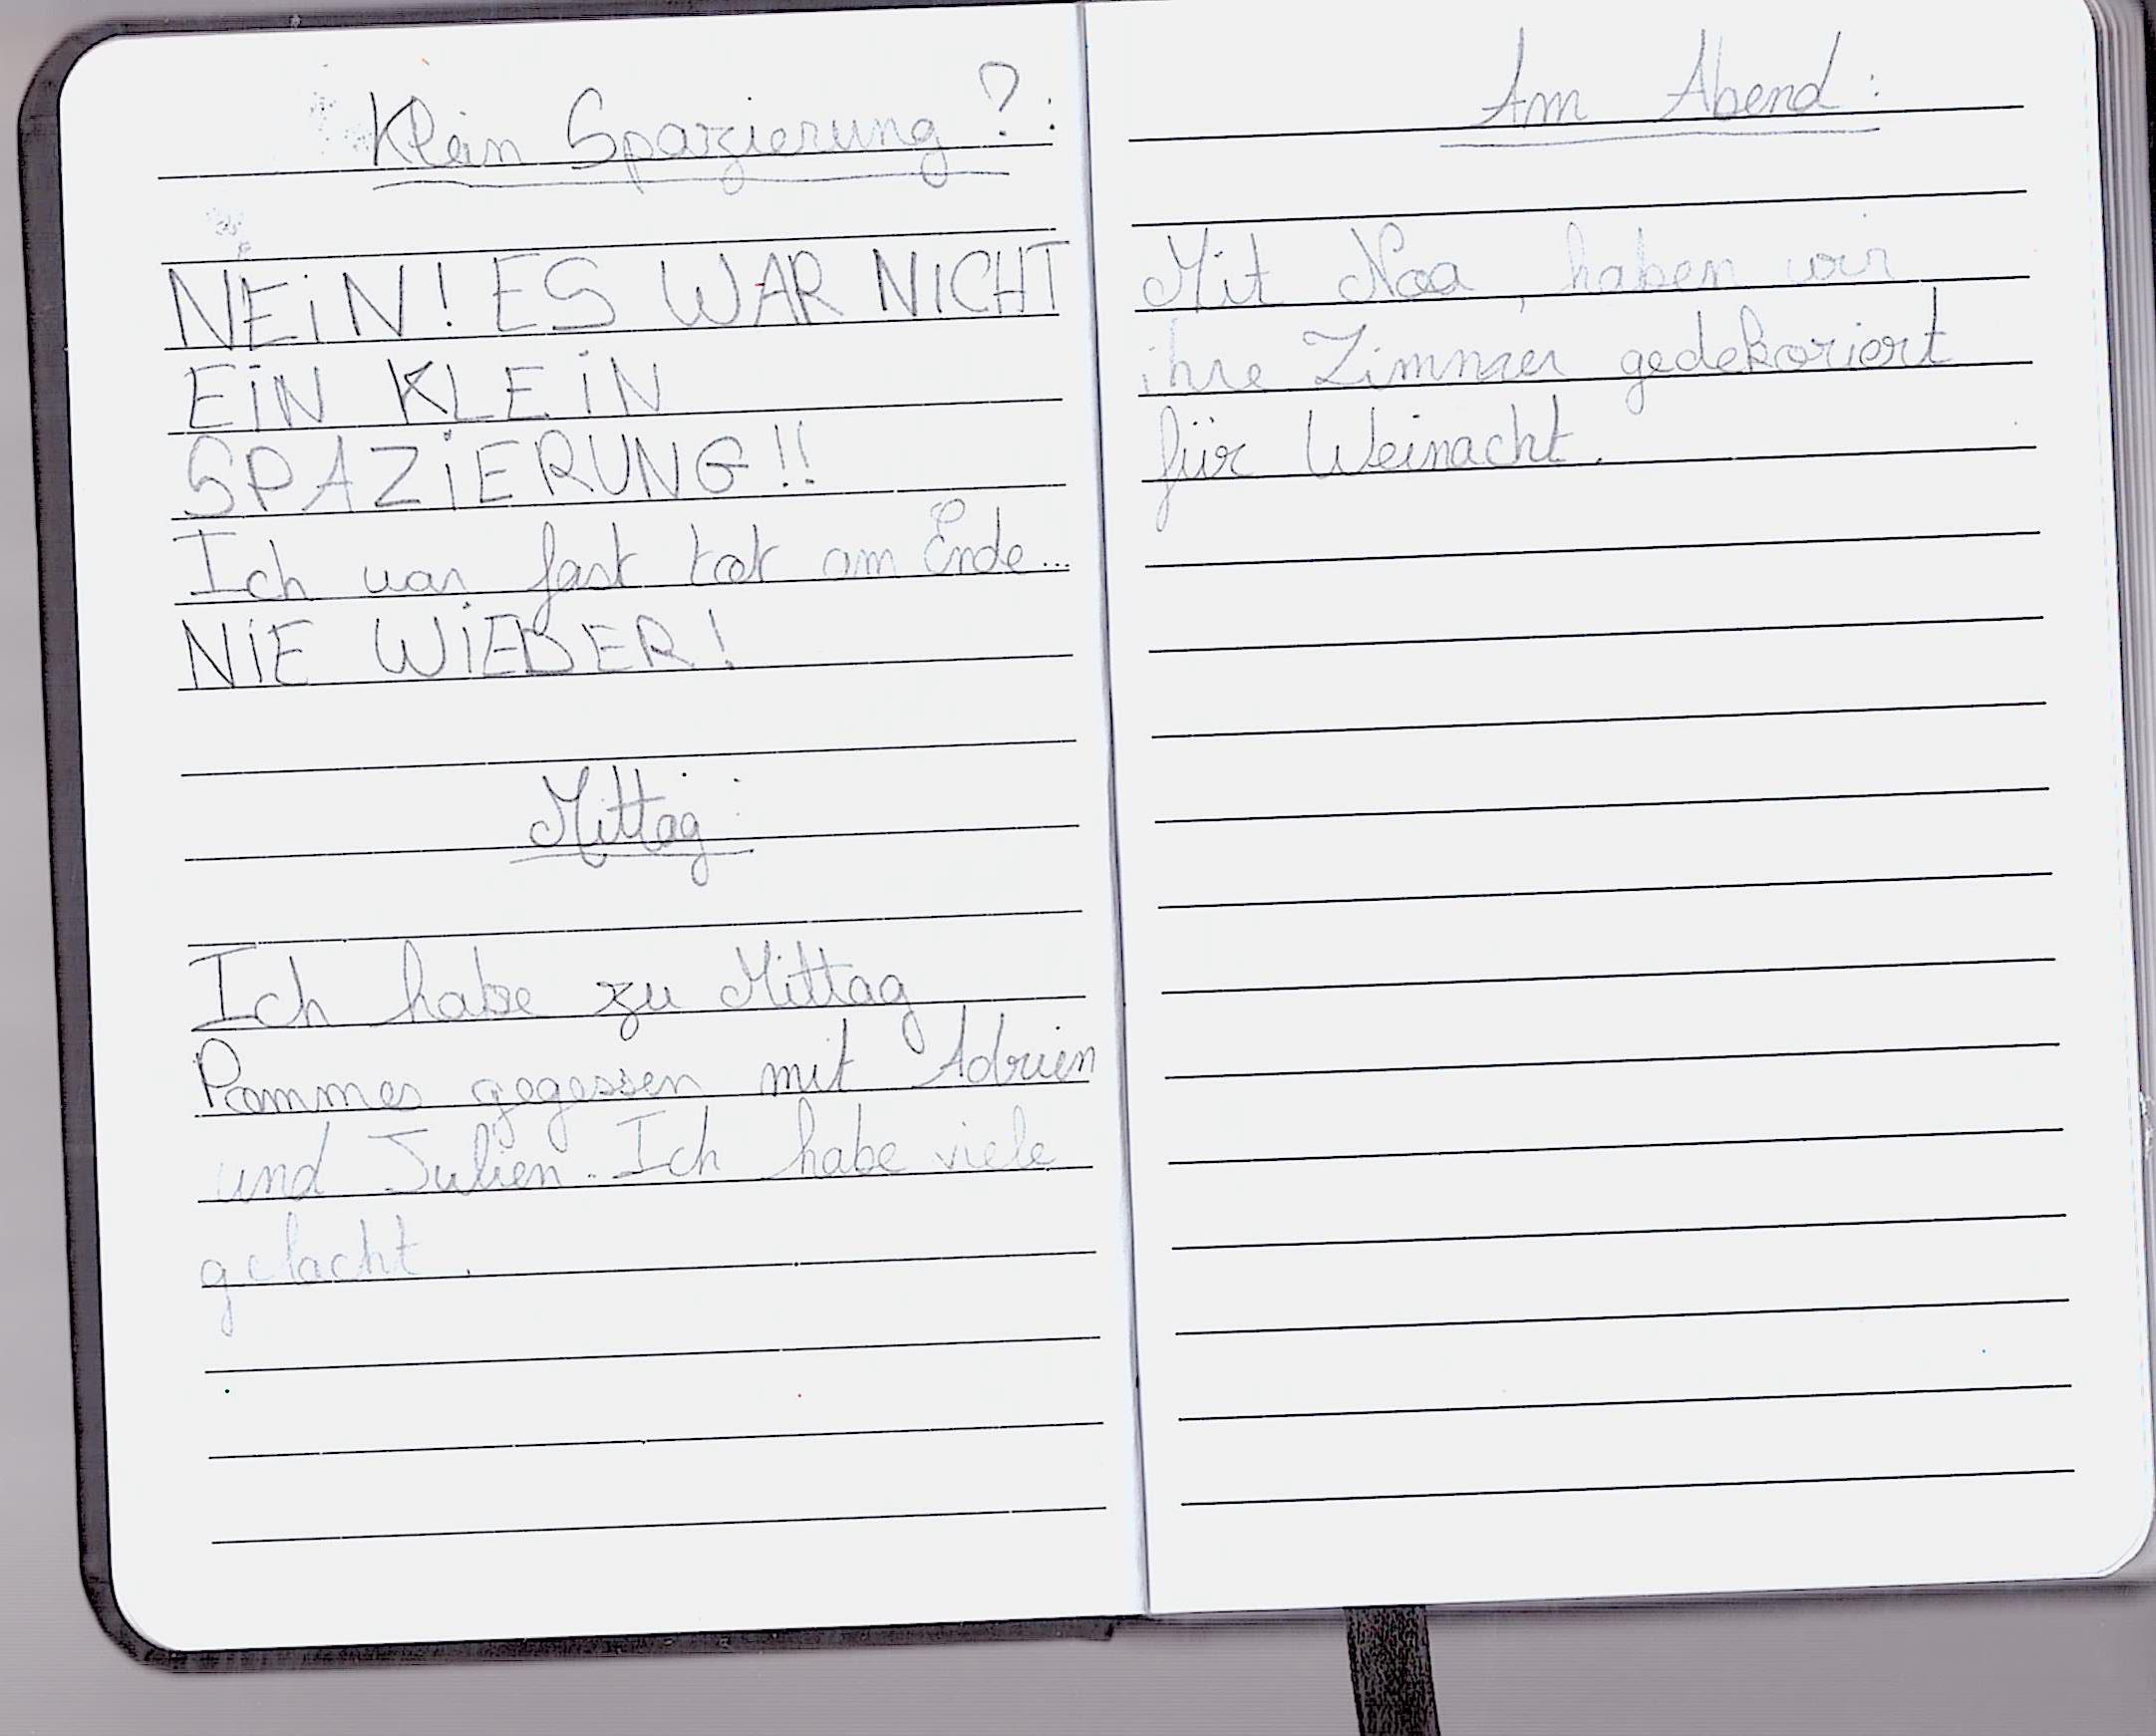 Klein Spazierung ? :
NEiN! ES WAR NiCHT
EiN KLEiN
SPAZiERUNG!!
Ich war fast tot am Ende...
NiE WiEDER!
Mittag :
Ich habe zu Mittag
Pommes gegessen mit Adrien
und Julien. Ich habe viele
gelacht.
Am Abend :
Mit Noa, haben wir
ihre Zimmer gedekoriert
für Weinacht.